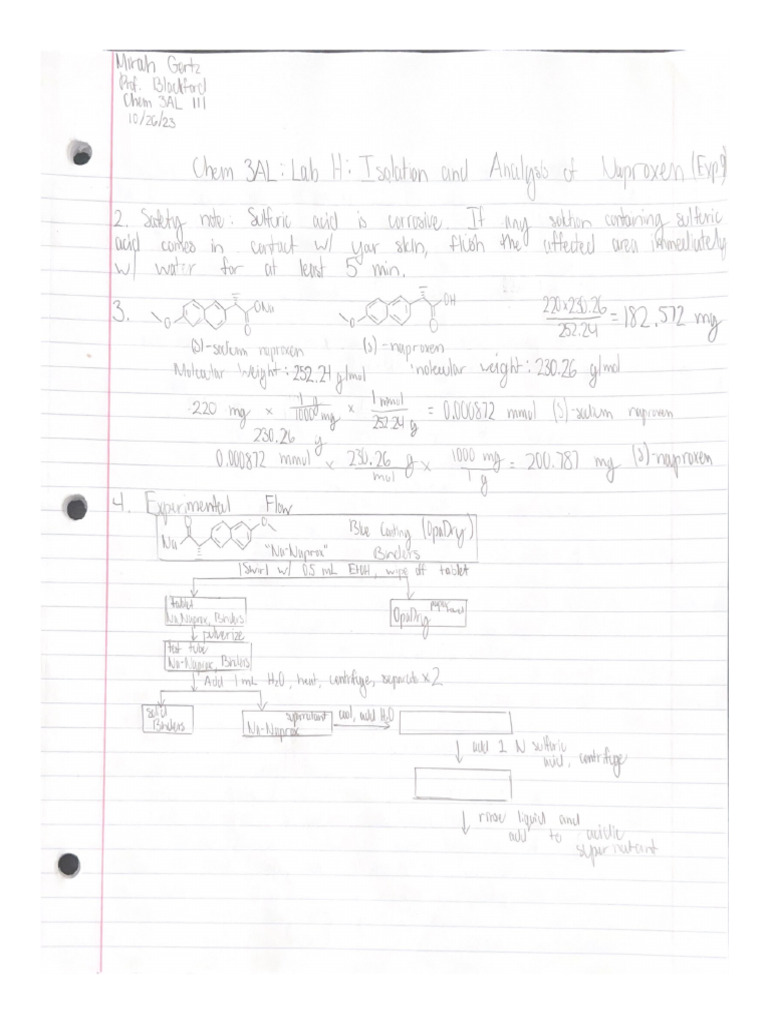 Mirah Gortz
Prof. Blackford
Chem 3AL 111
10/26/23
Chem 3AL: Lab H: Isolation and Analysis of Naproxen (Exp 9)
2. Safety note: Sulfuric acid is corrosive. If any solution containing sulfuric
acid comes in contact w/ your skin, flush the affected area immediately
w/ water for at least 5 min.
3.
ONa
O
O
OH
O
O
220x230.26
252.24
=182.572 mg
(S)-sodium naproxen
(S)-naproxen
Molecular Weight: 252.24 g/mol
molecular weight: 230.26 g/mol
220 mg x 1 g / 1000 mg x 1 mmol / 252.24 g = 0.000872 mmol (S)-sodium naproxen
230.26 g
0.000872 mmol x 230.26 g / mol x 1000 mg / 1 g = 200.787 mg (S)-naproxen
4. Experimental Flow
O
Na
O
"Na-Naprox"
Blue Coating (OpaDry)
Binders
Swirl w/ 0.5 mL EtOH, wipe off tablet
tablet
Na Naprox, Binders
OpaDry
paper towel
pulverize
test tube
Na-Naprox, Binders
Add 1 mL H₂O, heat, centrifuge, separate x2
solid
Binders
supernatant
Na-Naprox
cool, add H₂O
add 2 N sulfuric
acid, centrifuge
rinse liquid and
add to acidic
supernatant